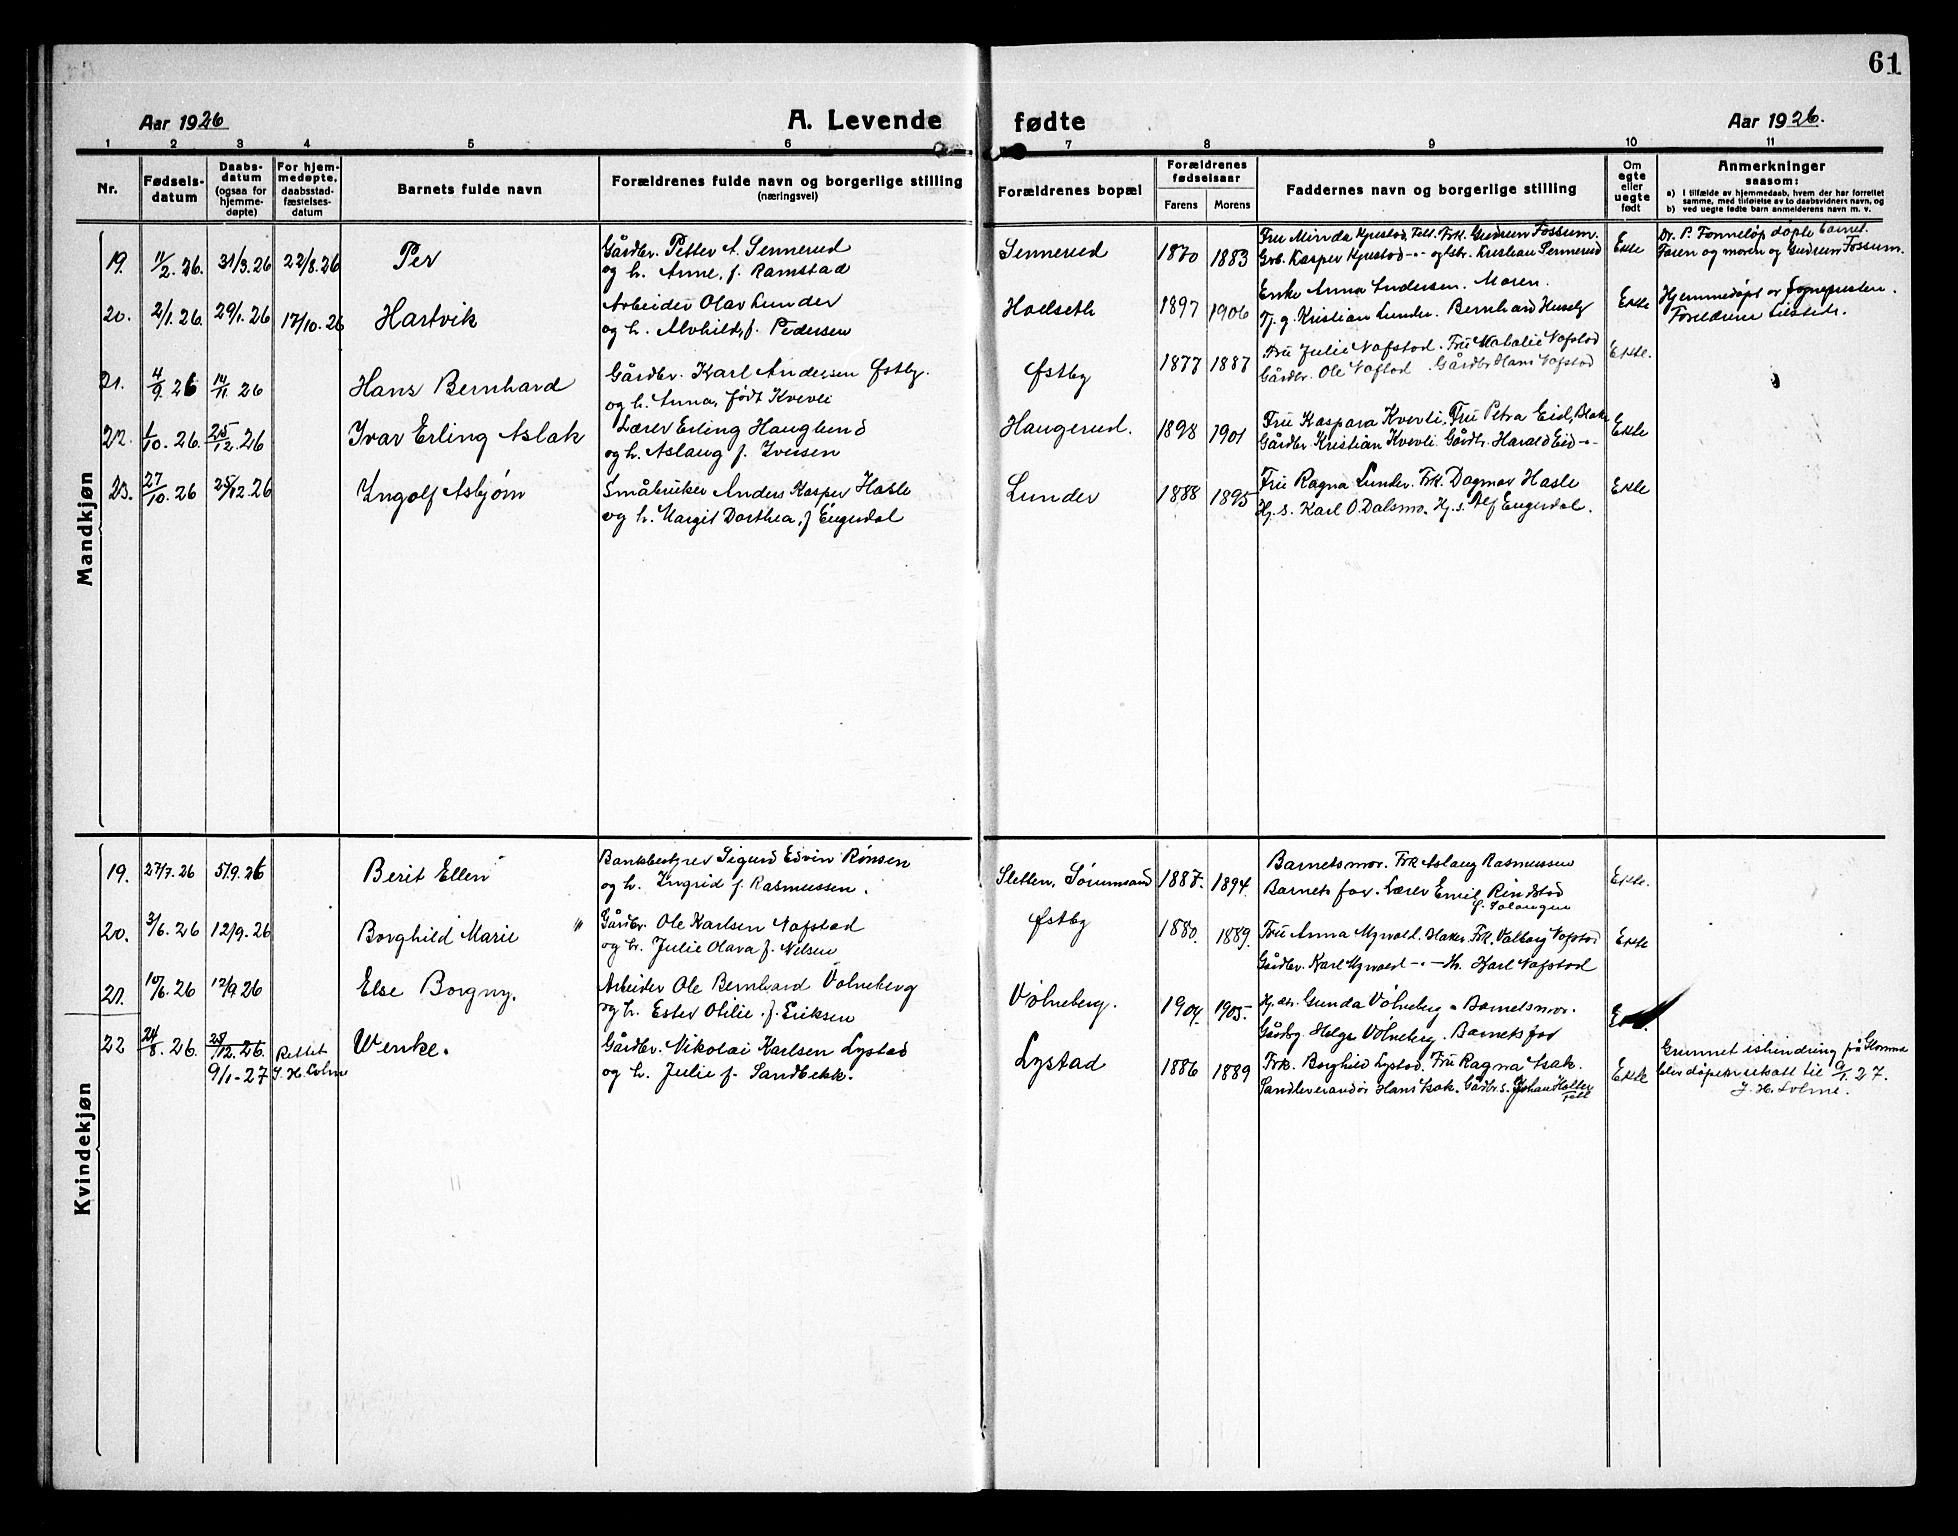 61
Aar 1926
A. Levende
fødte
Aar 1926.
1 2 3 4 5 6 7 8 9 10 11
Nr.
Fødsels-
datum
Daabs-
datum
(ogsaa for
hjemme-
døpte)
For hjem-
medøpte,
daabsstad-
fæstelses-
datum
Barnets fulde navn
Forældrenes fulde navn og borgerlige stilling
(næringsvei)
Forældrenes bopæl
Forældrenes
fødselsaar
Farens
Morens
Faddernes navn og borgerlige stilling
Om
egte
eller
uegte
født
Anmerkninger
saasom:
a) I tilfælde av hjemmedaab, hvem der har forrettet
samme, med tilføielse av to daabsvidners navn, og
b) ved uegte fødte barn anmelderens navn m. v.
Mandkjøn
19. 11/2. 26. 31/3. 26 22/8. 26 Per
Gårdbr. Petter A. Sennerud
og h. Anne, f. Ramstad
Sennerud 1870 1883
Fru Minda Kjustad, Frk. Gudrun Fossum.
Grb. Kasper Kjustad -"- og Kristian Sennerud
Ekte
Dr. P. Fonneløp døpte barnet.
Faren og moren og Gudrun Fossum.
20. 2/1. 26. 29/1. 26 17/10. 26 Hartvik
Arbeider Olav Lunder
og h. Alvhild, f. Pedersen
Holseth 1897 1906
Enke Anna Andersen. Moren.
Tj. g. Kristian Lunder. Bernhard
Ekte
Hjemmedøpt av sogneprsten.
Foreldrene tilstede.
21. 4/9. 26 14/11 26 Hans Bernhard
Gårdbr. Karl Andersen Østby.
og h. Anna, født Kvevli
Østby 1877 1887
Fru Julie Nafstad. Fru Mahalie Nafstad
Gårdbr. Ole Nafstad Gårdbr Hans Nafstad
Ekte.
22. 1/10. 26. 25/12. 26 Ivar Erling Aslak
Lærer Erling Hauglund
og h. Aslaug f. Iversen
Haugerud. 1898 1901
Fru Kaspara Kvevli, Fru Petra Eid, Blaker
Gårdbr Kristian Kvevli. Gårdbr. Harald Eid -"-
Ekte
23. 27/10. 26 25/12. 26 Ingolf Asbjørn
Småbruker Anders Kasper Hasle
og h. Margit Dorthea, f Engerdal
Lunder 1888 1895
Fru Ragna Lunder. Frk. Dagmar Hasle
Hj. s. Karl O. Dalsmo. Hj. s. Alf Engerdal.
Ekte
Kvindekjøn
19. 27/7. 26 5/9. 26 Berit Ellen
Bankbestyrer Sigurd Edvin Rønsen
og h. Ingrid f. Rasmussen.
Sletten, Sørumsand 1887. 1894.
Barnets mor. Frk Aslaug Rasmussen
Barnets far. Lærer Emil Rindstad
Ekte.
20. 3/6. 26 12/9. 26 Borghild Marie "
Gårdbr. Ole Karlsen Nafstad
og h. Julie Olava f. Nilsen
Østby 1880. 1889.
Fru Anna Myrvold. Frk. Valborg Nafstad
Gårdbr. Karl Myrvold -"- Karl Nafstad
Ekte
21. 10/6. 26 12/9 26 Else Borgny.
Arbeider Ole Bernhard Vølneberg
og h. Ester Otilie. f. Eriksen
Vølneberg. 1904. 1905.
Gunda Vølneberg Barnets mor.
Gårdbr. Helge Vølneberg. Barnets far
22 24/8. 26. 25/12. 26. Rettet
9/1-27 J. H. Lolme
Wenke.
Gårdbr. Nikolai Karlsen Lystad
og h. Julie f. Sandbekk.
Lystad 1886 1889
Frk. Borghild Lystad. Fru Ragna Isak.
Sandleverandør Hans Isak. Gårdbr. s. Johan Holter
Fett
Ekte
Grunnet ishindring på Glomma
blev dåpen utsatt til 9/1. 27.
J. H. Lolme.